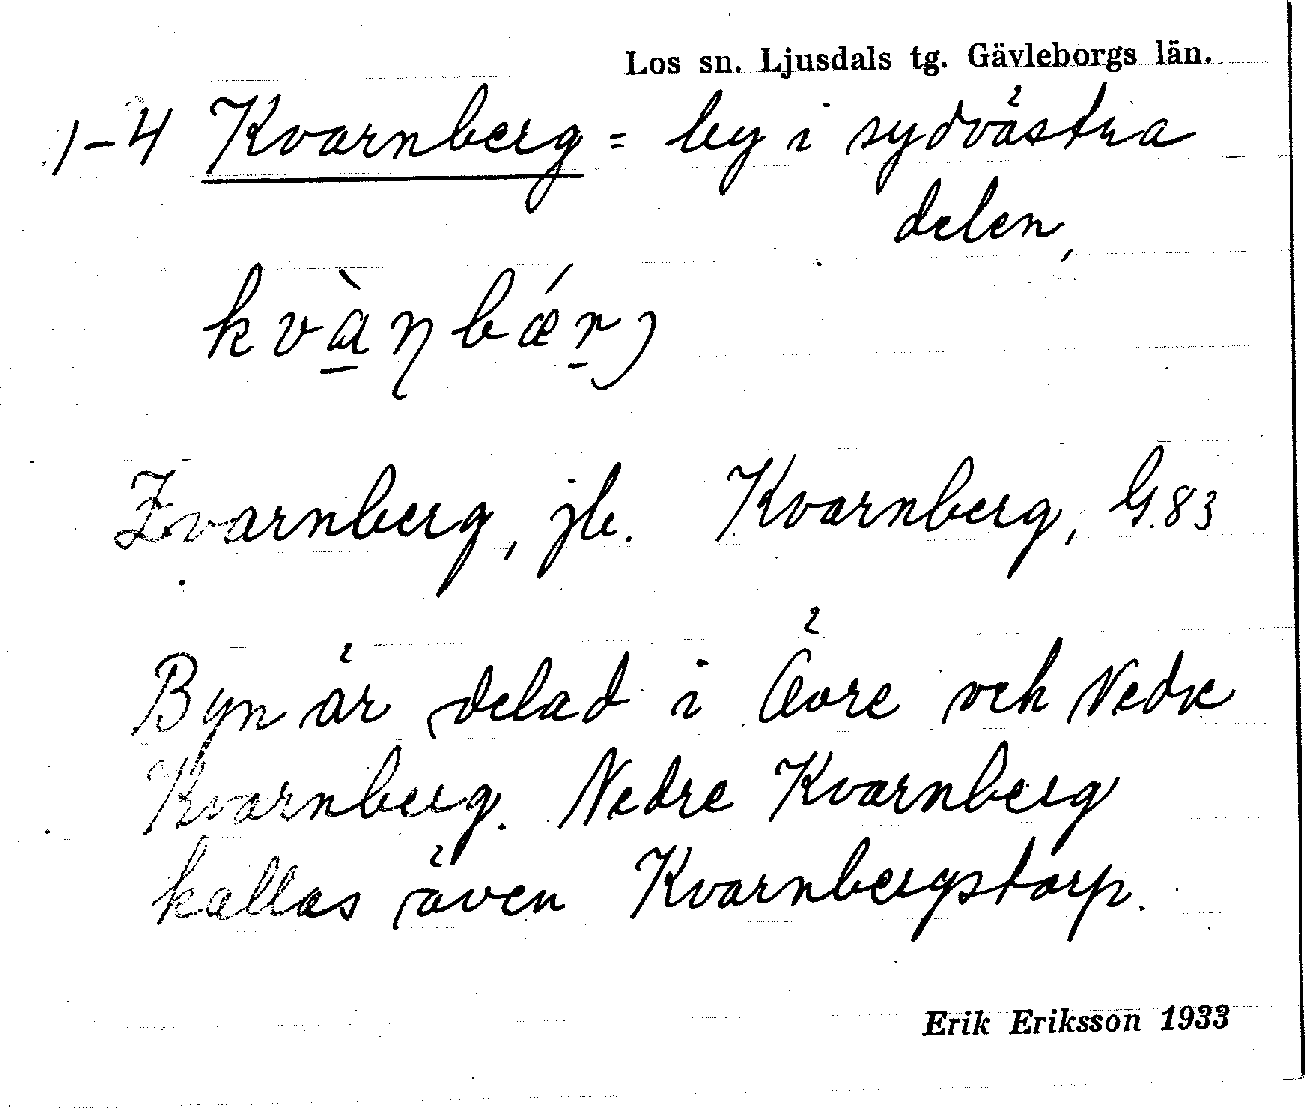 Los sn. Ljusdals tg. Gävleborgs län.
1-4 Kvarnberg = by i sydvästra
delen,
kvàηbǽrj
Kvarnberg, jb. Kvarnberg, G.83
Byn är delad i Övre och Nedre
Kvarnberg. Nedre Kvarnberg
kallas även Kvarnbergstorp.
Erik Eriksson 1933